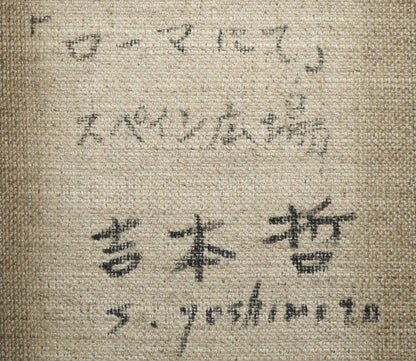 「ローマにて」
スペイン広場
吉本 哲
S. yoshimoto